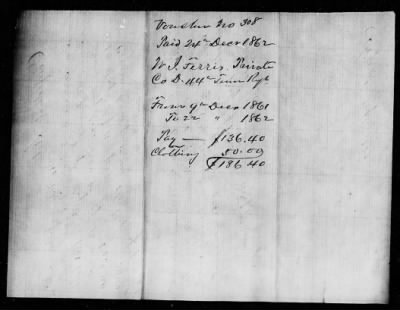 Voucher No 308
Paid 24th Decr 1862
W. J. Ferris Private
Co D. 44th Tenn Rgt
From 9th Decr 1861
" 1862
Pay — $136.40
Clothing 50.00
$186.40